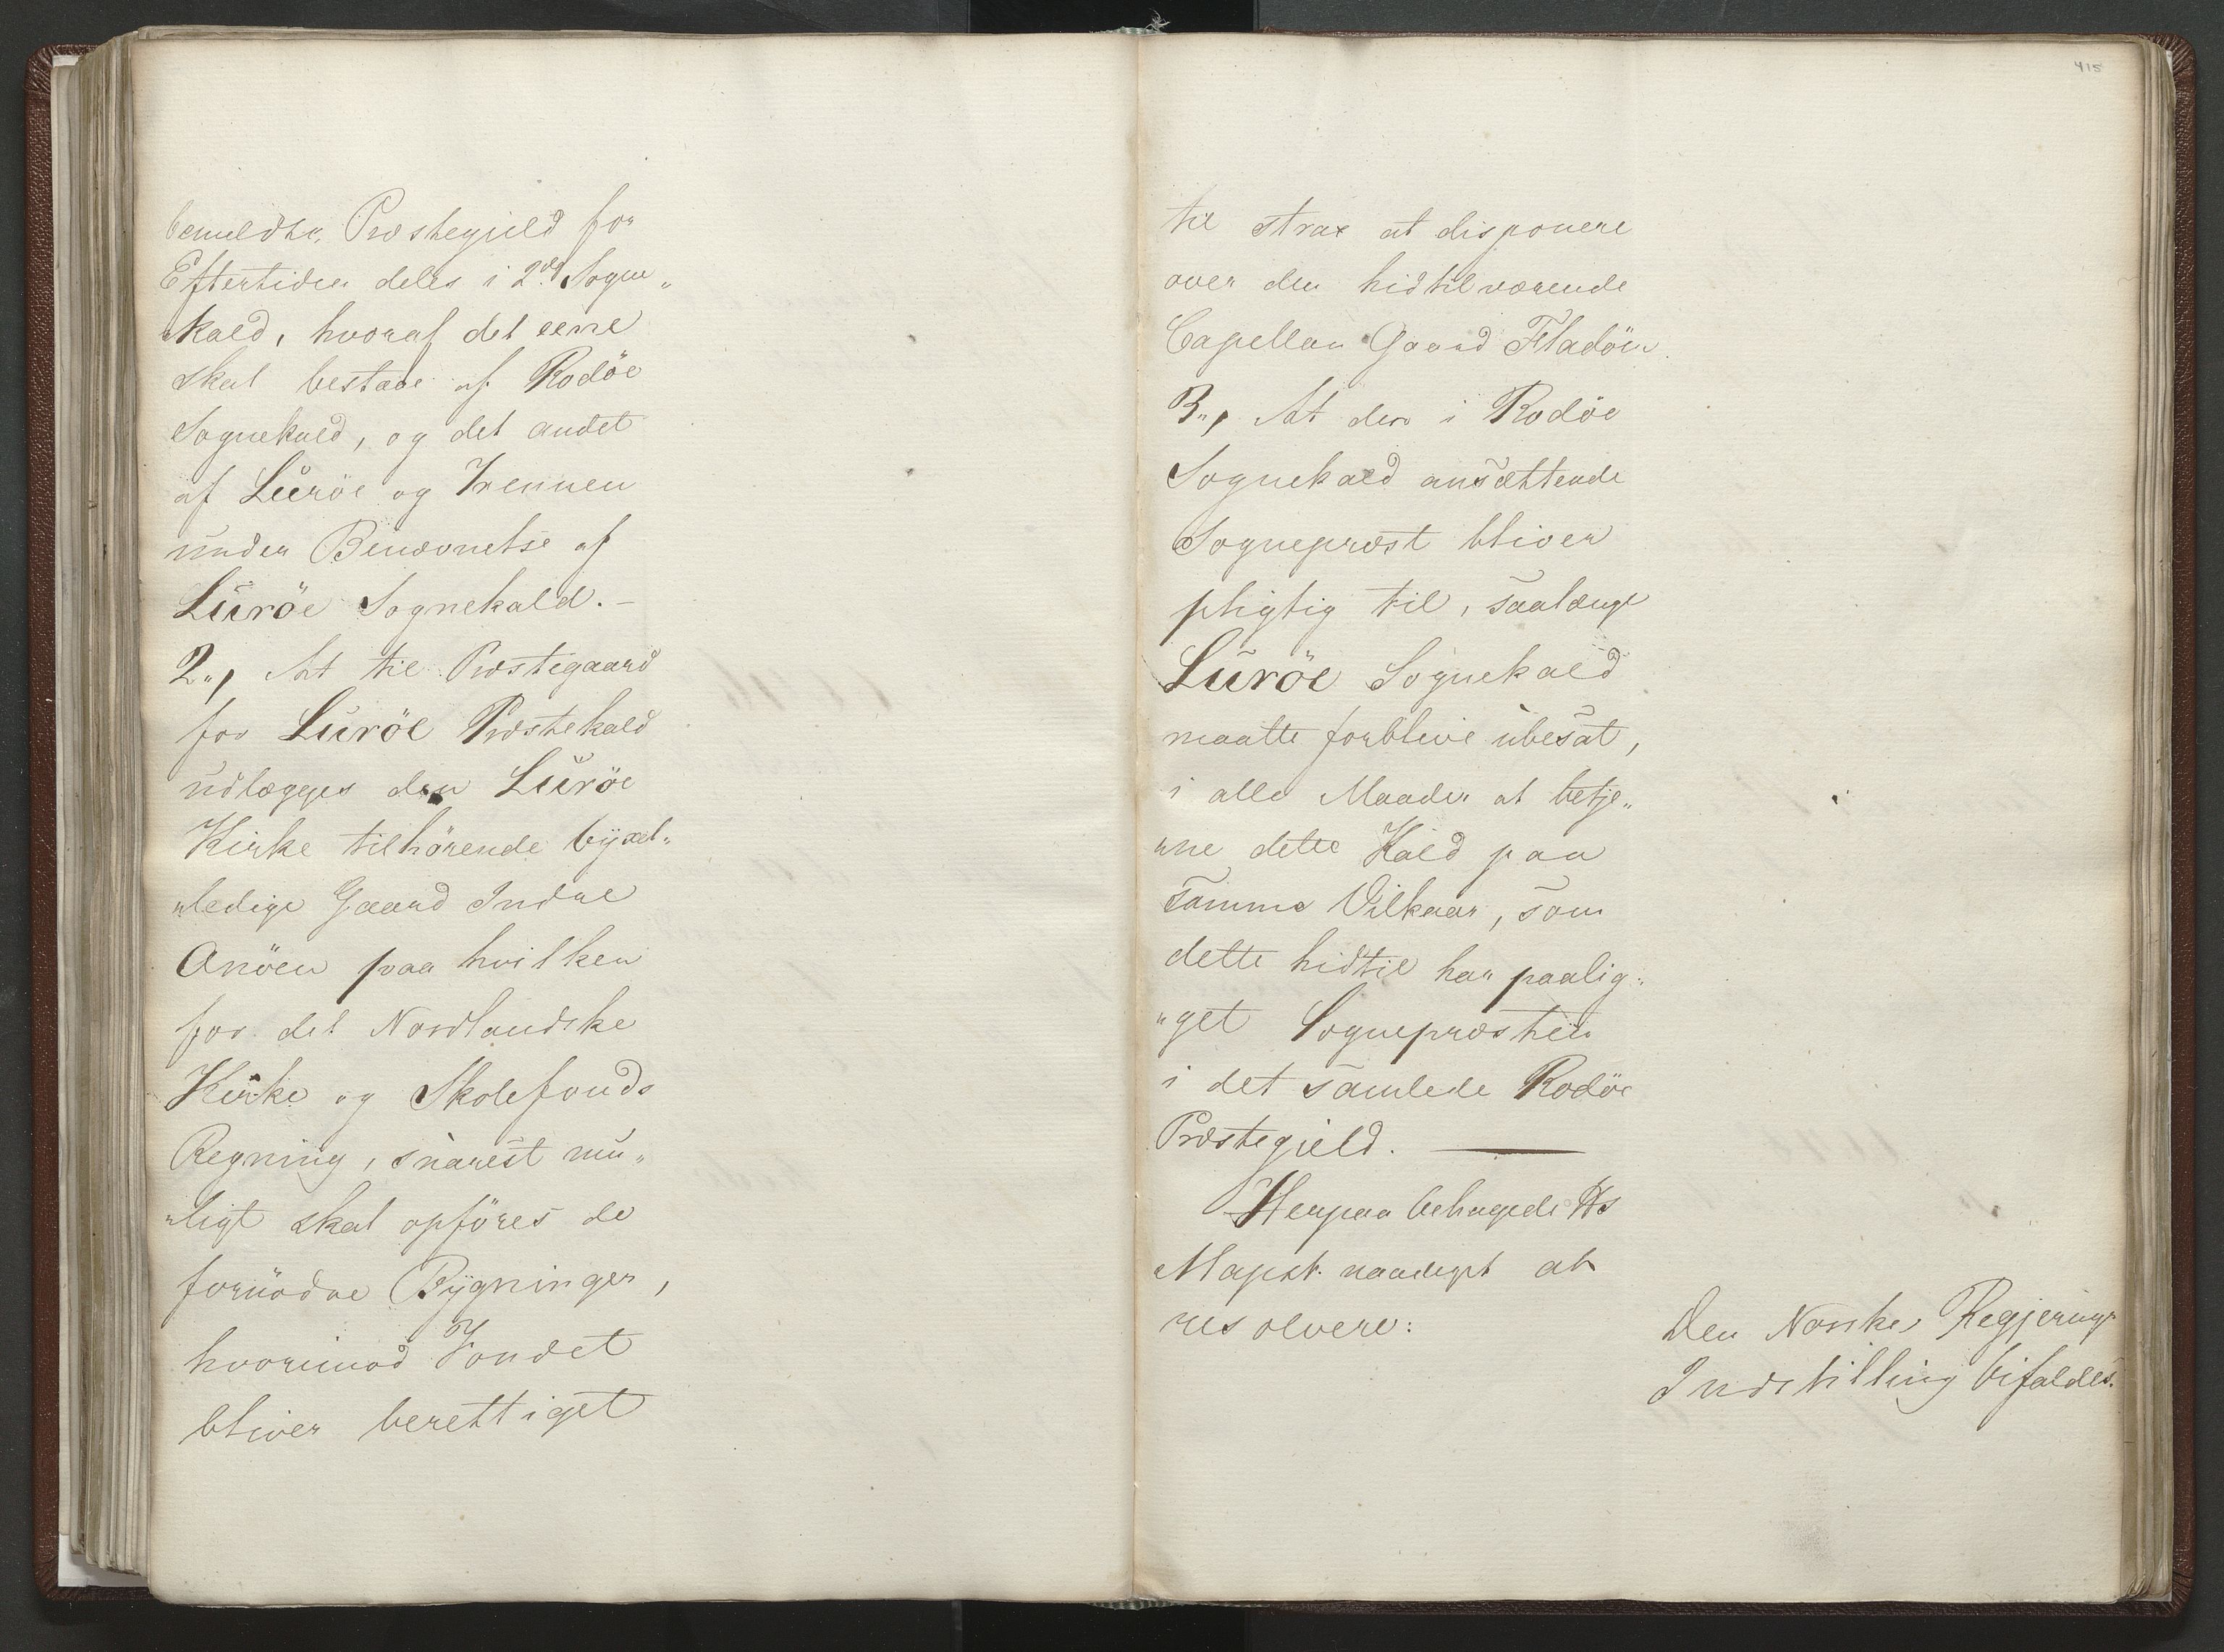 415
bemeldte Præstegield for
Eftertiden deles i 2de Sogne„
kald, hvoraf det eene
skal bestaae af Rodöe
Sognekald, og det andet
af Luröe og Trennen
under Benævnelse af
Luröe Sognekald. –
2„, At til Præstegaard
for Luröe Præstekald
udlægges den Luröe
Kirke tilhörende byxel„
„ledige Gaard Indre
Onöen paa hvilken
for det Nordlandske
Kirke og Skolefonds
Regning, snarest mu„
„ligt skal opföres de
fornödne Bygninger,
hvorimod Fondet
bliver berettiget
til strax at disponere
over den hidtilværende
Capellan Gaard Fladöen.
3„, At den i Rodöe
Sognekald ansættende
Sognepræst bliver
pligtig til, saalænge
Luröe Sognekald
maatte forblive ubesat,
i alle Maader at betje„
„ne dette Kald paa
samme Vilkaar, som
dette hidtil har paalig„
„get Sognepræsten
i det samlede Rodöe
Præstegield. —
Herpaa behagede Hs
Majest. naadigst at
resolvere:
Den Norske Regjerings
Indstilling bifaldes.